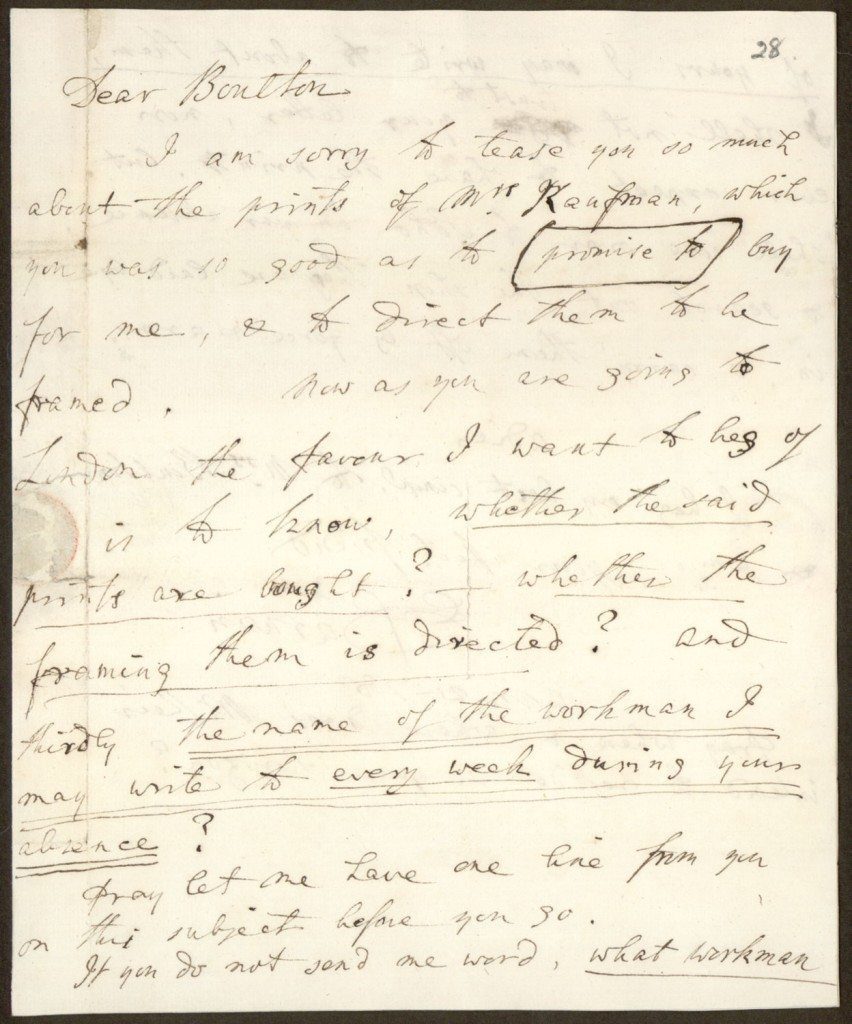 28
Dear Boulton
I am sorry to tease you so much
about the prints of Mrs Kaufman, which
you was so good as to promise to buy
for me, & to direct them to be
framed. Now as you are going to
London the favour I want to beg of
is to know, whether the said
prints are bought? — whether the
framing them is directed? and
thirdly the name of the workman I
may write to every week during your
absence?
Pray let me have one line from you
on this subject before you go.
If you do not send me word, what workman